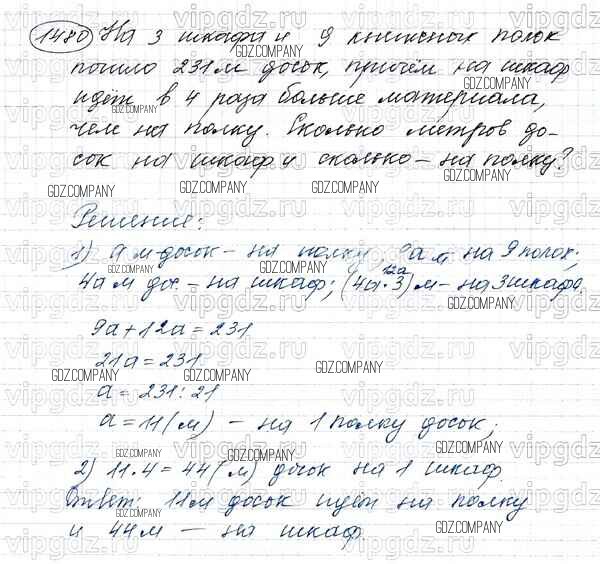 1480 На 3 шкафа и 9 книжных полок
пошло 231 м досок, причём на шкаф
идёт в 4 раза больше материала,
чем на полку. Сколько метров до-
сок на шкаф и сколько – на полку?
Решение:
1) а м досок – на полку; 9а м на 9 полок;
12а
4а м дос. – на шкаф; (4а·3) м – на 3 шкафа.
9а + 12а = 231
21а = 231
а = 231 : 21
а = 11 (м) – на 1 полку досок;
2) 11·4 = 44 (м) досок на 1 шкаф.
Ответ: 11 м досок идёт на полку
и 44 м – на шкаф.
vipgdz.ru
GDZ.COMPANY